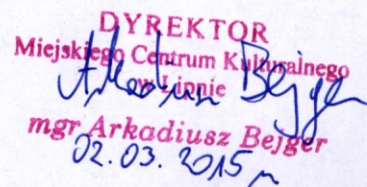 DYREKTOR
Miejskiego Centrum Kulturalnego
w Lipnie
Arkadiusz Bejger
mgr Arkadiusz Bejger
02.03.2015 r.